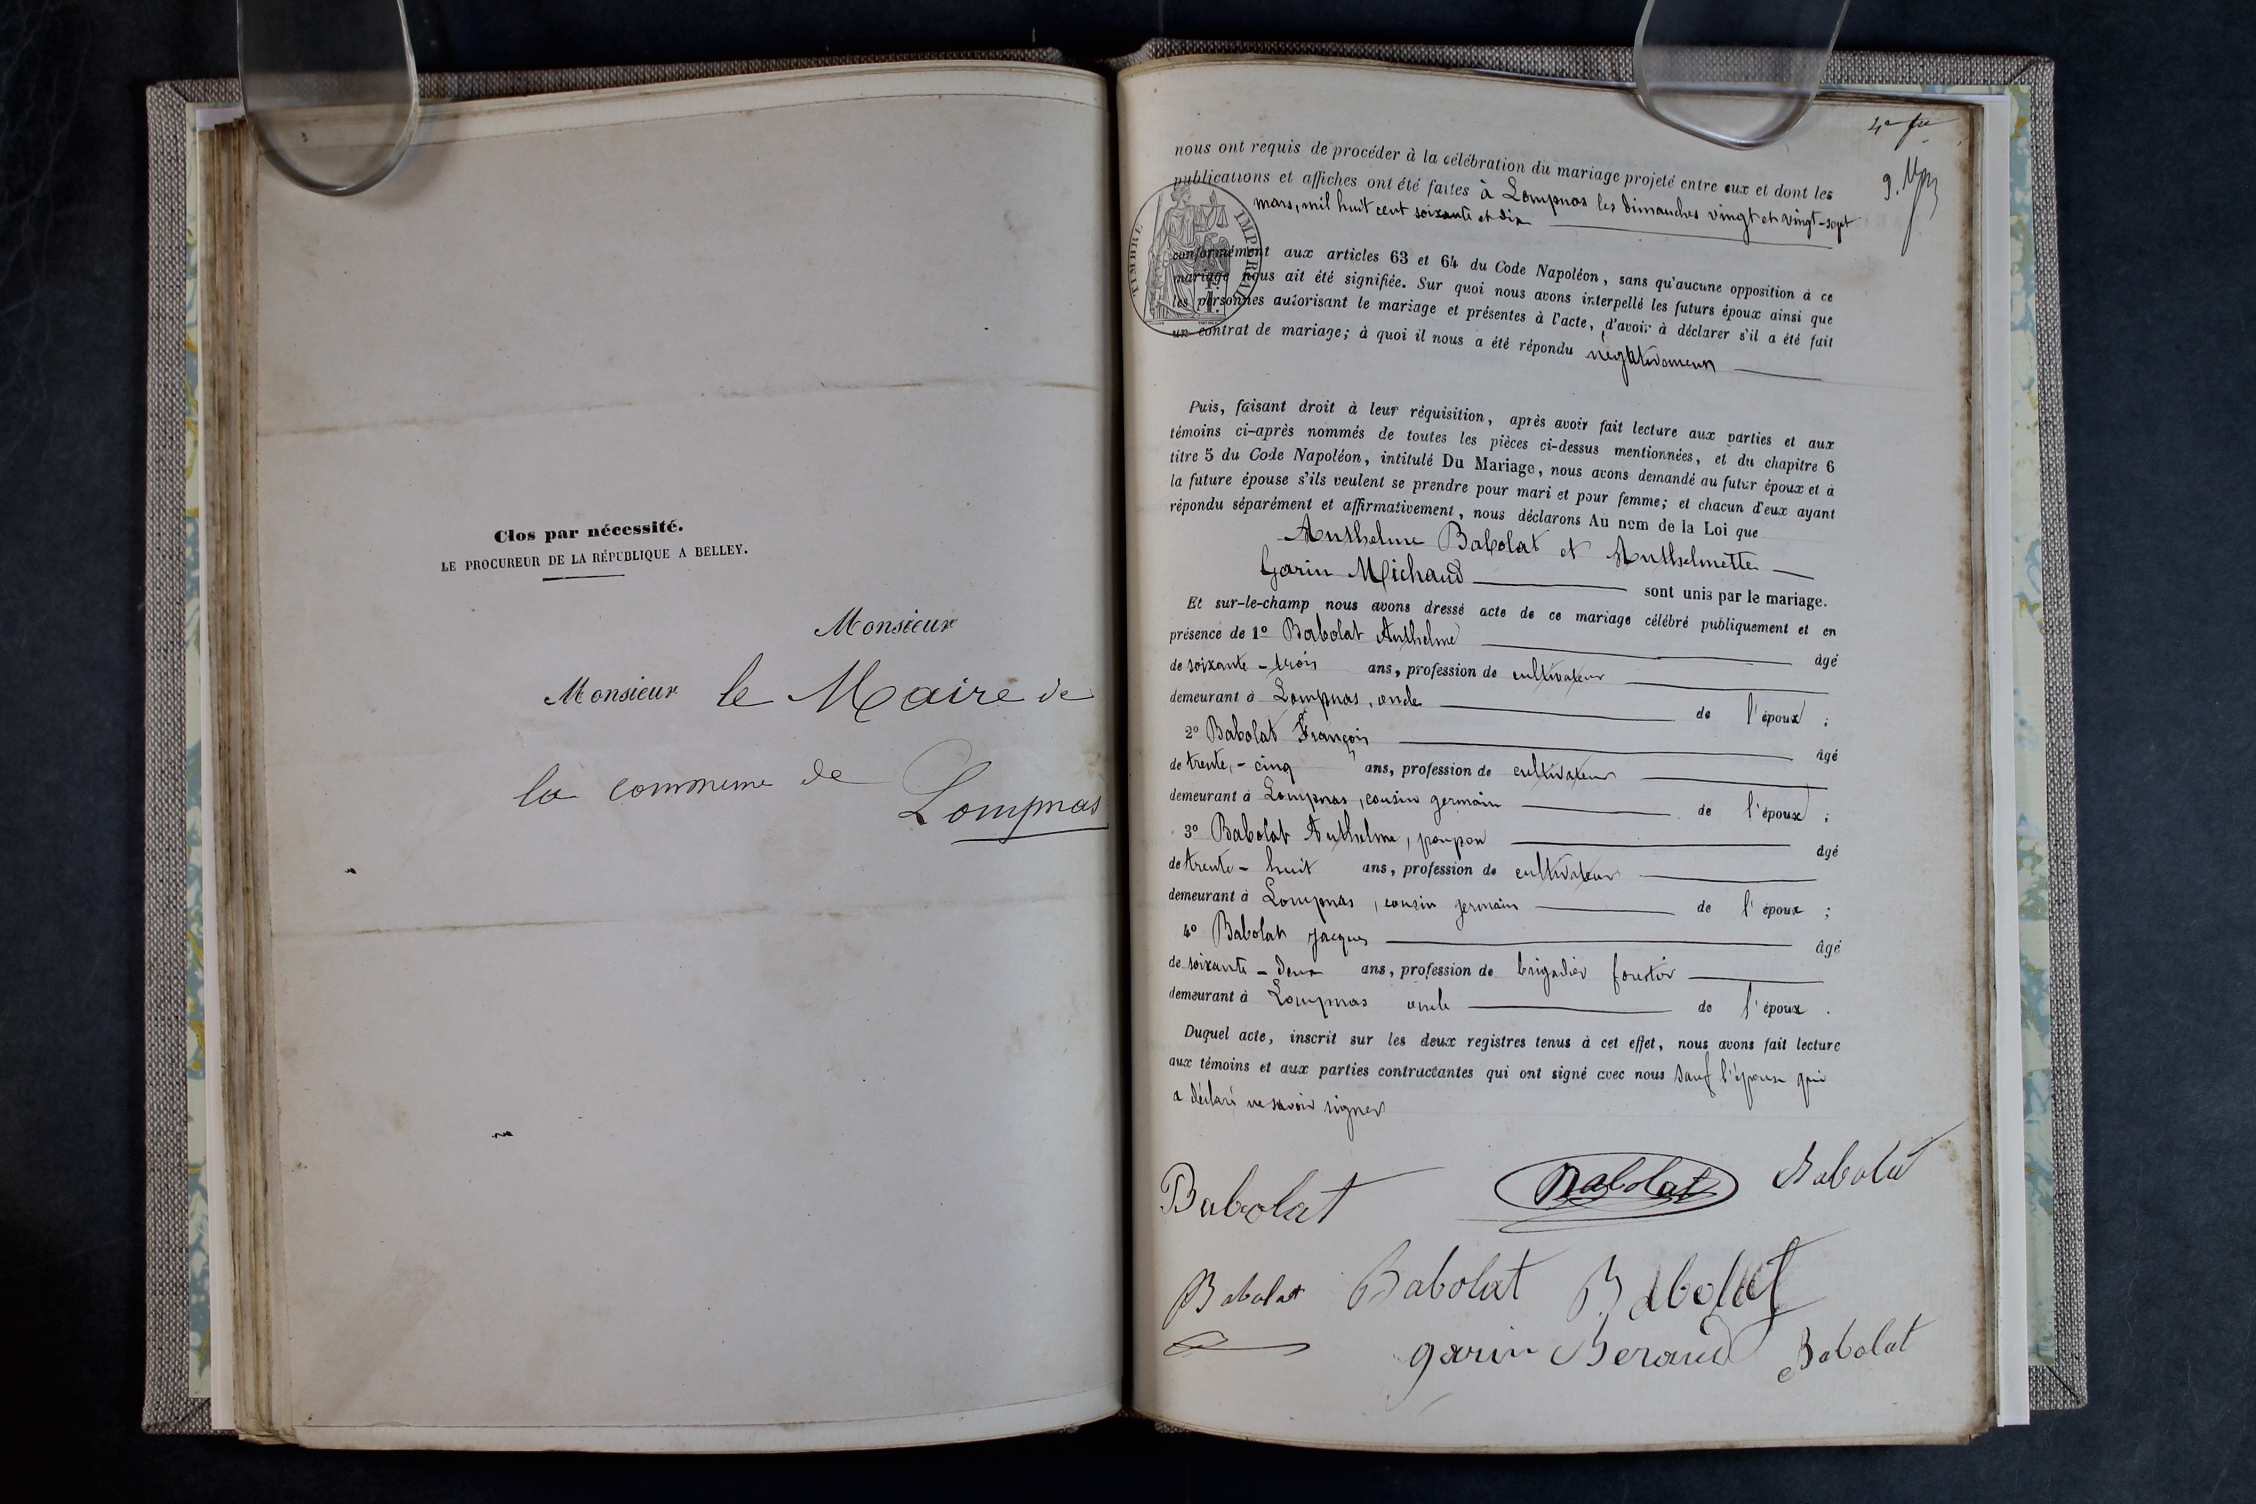 Clos par nécessité.
LE PROCUREUR DE LA RÉPUBLIQUE A BELLEY.
Monsieur
Monsieur le Maire de
la commune de
Lompnas
4e
9.
nous ont requis de procéder à la célébration du mariage projeté entre eux et dont les
publications et affiches ont été faites à Lompnas les dimanches vingt et vingt-sept
mars, mil huit cent soixante et dix
TIMBRE IMPÉRIAL
conformément aux articles 63 et 64 du Code Napoléon, sans qu'aucune opposition à ce
mariage nous ait été signifiée. Sur quoi nous avons interpellé les futurs époux ainsi que
les personnes autorisant le mariage et présentes à l'acte, d'avoir à déclarer s'il a été fait
un contrat de mariage; à quoi il nous a été répondu négativement
Puis, faisant droit à leur réquisition, après avoir fait lecture aux parties et aux
témoins ci-après nommés de toutes les pièces ci-dessus mentionnées, et du chapitre 6
titre 5 du Code Napoléon, intitulé Du Mariage, nous avons demandé au futur époux et à
la future épouse s'ils veulent se prendre pour mari et pour femme; et chacun d'eux ayant
répondu séparément et affirmativement, nous déclarons Au nom de la Loi que
Anthelme Babolat et Anthelmette
Garin Michaud sont unis par le mariage.
Et sur-le-champ nous avons dressé acte de ce mariage célébré publiquement et en
présence de 1º Babolat Anthelme âgé
de soixante-trois ans, profession de cultivateur
demeurant à Lompnas, oncle de l'époux ;
2º Babolat François âgé
de trente-cinq ans, profession de cultivateur
demeurant à Lompnas, cousin germain de l'époux ;
3º Babolat Anthelme, poupon âgé
de trente-huit ans, profession de cultivateur
demeurant à Lompnas, cousin germain de l'époux ;
4º Babolat Jacques âgé
de soixante-deux ans, profession de brigadier forestier
demeurant à Lompnas oncle de l'époux .
Duquel acte, inscrit sur les deux registres tenus à cet effet, nous avons fait lecture
aux témoins et aux parties contractantes qui ont signé avec nous sauf l'épouse qui
a déclaré ne savoir signer
Babolat Babolat Babolat
Babolat Babolat Babolat
garin Beraud Babolat